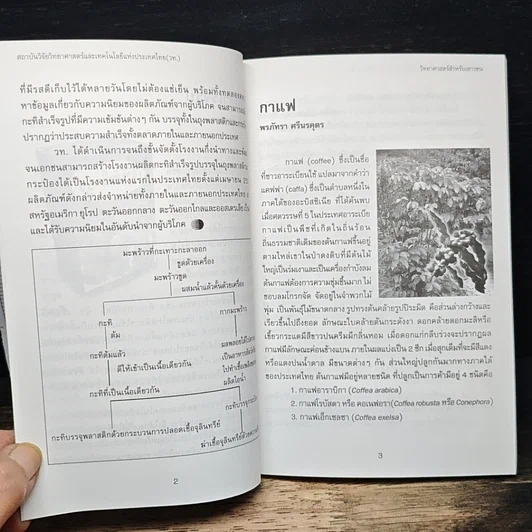 สถาบันวิจัยวิทยาศาสตร์และเทคโนโลยีแห่งประเทศไทย(วท.)
ที่มีรสดีเก็บไว้ได้หลายวันโดยไม่ต้องแช่เย็น พร้อมทั้งทดลอง
หาข้อมูลเกี่ยวกับความนิยมของผลิตภัณฑ์จากผู้บริโภค จนสามารถ
กะทิสำเร็จรูปที่มีความเข้มข้นต่างๆ กัน บรรจุทั้งในถุงพลาสติกและกระป๋อง
ปรากฏว่าประสบความสำเร็จทั้งตลาดภายในและภายนอกประเทศ
วท. ได้ดำเนินการจนถึงขั้นจัดตั้งโรงงานกึ่งนำทางและ
จนเอกชนสามารถสร้างโรงงานผลิตกะทิสำเร็จรูปบรรจุในถุงพลาสติก
กระป๋องได้เป็นโรงงานแห่งแรกในประเทศไทยตั้งแต่เมษายน
ผลิตภัณฑ์ดังกล่าวส่งจำหน่ายทั้งภายในและภายนอกประเทศ
สหรัฐอเมริกา ยุโรป ตะวันออกกลาง ตะวันออกไกลและออสเตรเลีย
และได้รับความนิยมในอันดับนำจากผู้บริโภค
มะพร้าวที่กะเทาะกะลาออก
ขูดด้วยเครื่อง
มะพร้าวขูด
ผสมน้ำแล้วคั้นด้วยเครื่อง
กะทิ
กากมะพร้าว
ต้ม
กะทิต้มแล้ว
ตีให้เข้าเป็นเนื้อเดียวกัน
กะทิที่เป็นเนื้อเดียวกัน
ผลพลอยได้
เป็นอาหารสัตว์
ไปทำเชื้อเพลิง
ผลิตไอน้ำ
กะทิบรรจุ
กะทิบรรจุพลาสติกด้วยกระบวนการปลอดเชื้อจุลินทรีย์
ฆ่าเชื้อจุลินทรีย์ด้วย
2
วิทยาศาสตร์สำหรับเยาวชน
กาแฟ
พรภัทรา ศรีนรคุตร
กาแฟ (coffee) ซึ่งเป็นชื่อ
ที่ชาวอาระเบียนใช้ แปลมาจากคำว่า
แคฟฟา (caffa) ซึ่งเป็นตำบลหนึ่งใน
ภาคใต้ของอะบิสซิเนีย ที่ได้ค้นพบ
เมื่อศตวรรษที่ 5 ในประเทศอาระเบีย
กาแฟเป็นพืชที่เกิดในถิ่นร้อน
ถิ่นธรรมชาติเดิมของต้นกาแฟขึ้นอยู่
ตามไหล่เขาในป่าดงดิบที่มีต้นไม้
ใหญ่เป็นร่มเงาและเป็นเครื่องกำบังลม
ต้นกาแฟต้องการความชุ่มชื้นมาก ไม่
ชอบลมโกรกจัด จัดอยู่ในจำพวกไม้
พุ่ม เป็นพันธุ์ไม้ขนาดกลาง รูปทรงต้นคล้ายรูปปิระมิด คือส่วนล่างกว้างและ
เรียวขึ้นไปถึงยอด ลักษณะใบคล้ายต้นกระดังงา ดอกคล้ายดอกมะลิหรือ
เขี้ยวกระแตมีสีขาวปนครีมมีกลิ่นหอม เมื่อดอกแก่กลีบร่วงจะปรากฏผล
กาแฟมีลักษณะค่อนข้างแบน ภายในผลแบ่งเป็น 2 ซีก เมื่อสุกเต็มที่จะมีสีแดง
หรือแดงปนน้ำตาล มีขนาดต่างๆ กัน ส่วนใหญ่ปลูกกันมากทางภาคใต้
ของประเทศไทย ต้นกาแฟมีอยู่หลายชนิด ที่ปลูกเป็นการค้ามีอยู่ 4 ชนิดคือ
1. กาแฟอาราบิกา (Coffea arabica)
2. กาแฟโรบัสตา หรือ คอเนฟอรา (Coffea robusta หรือ Conephora)
3. กาแฟเอ็กเซลซา (Coffea exelsa)
3